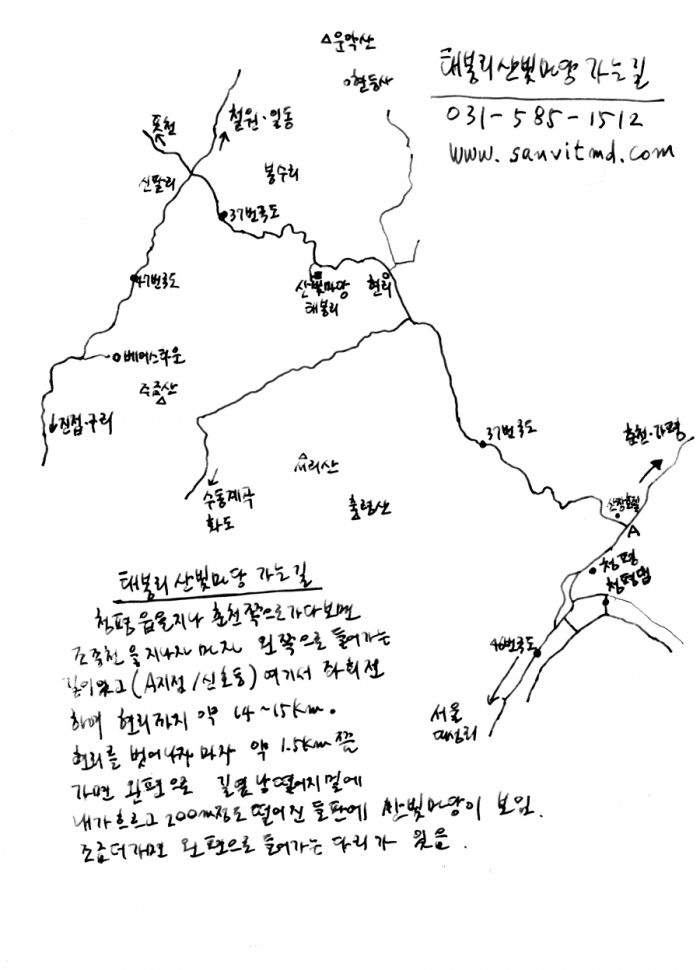 △운악산
현등사
태봉리 산빛마당 가는길
031-585-1512
www.sanvitmd.com
포천
철원·일동
신팔리
봉수리
37번국도
47번국도
산빛마당
태봉리
현리
베어스타운
주금산
진접·구리
37번국도
춘천·가평
서리산
수동계곡
화도
축령산
산장호텔
A
청평
청평댐
46번국도
서울
대성리
태봉리 산빛마당 가는길
청평읍을지나 춘천쪽으로가다보면
조종천을지나자 마자 왼쪽으로 들어가는
길이있고 (A지점/신호등) 여기서 좌회전
하여 현리까지 약 14~15Km.
현리를 벗어나자 마자 약 1.5Km쯤
가면 왼편으로 길옆 낭떨어지밑에
내가흐르고 200m정도 떨어진 들판에 산빛마당이 보임.
조금더가면 왼편으로 들어가는 다리가 있음.